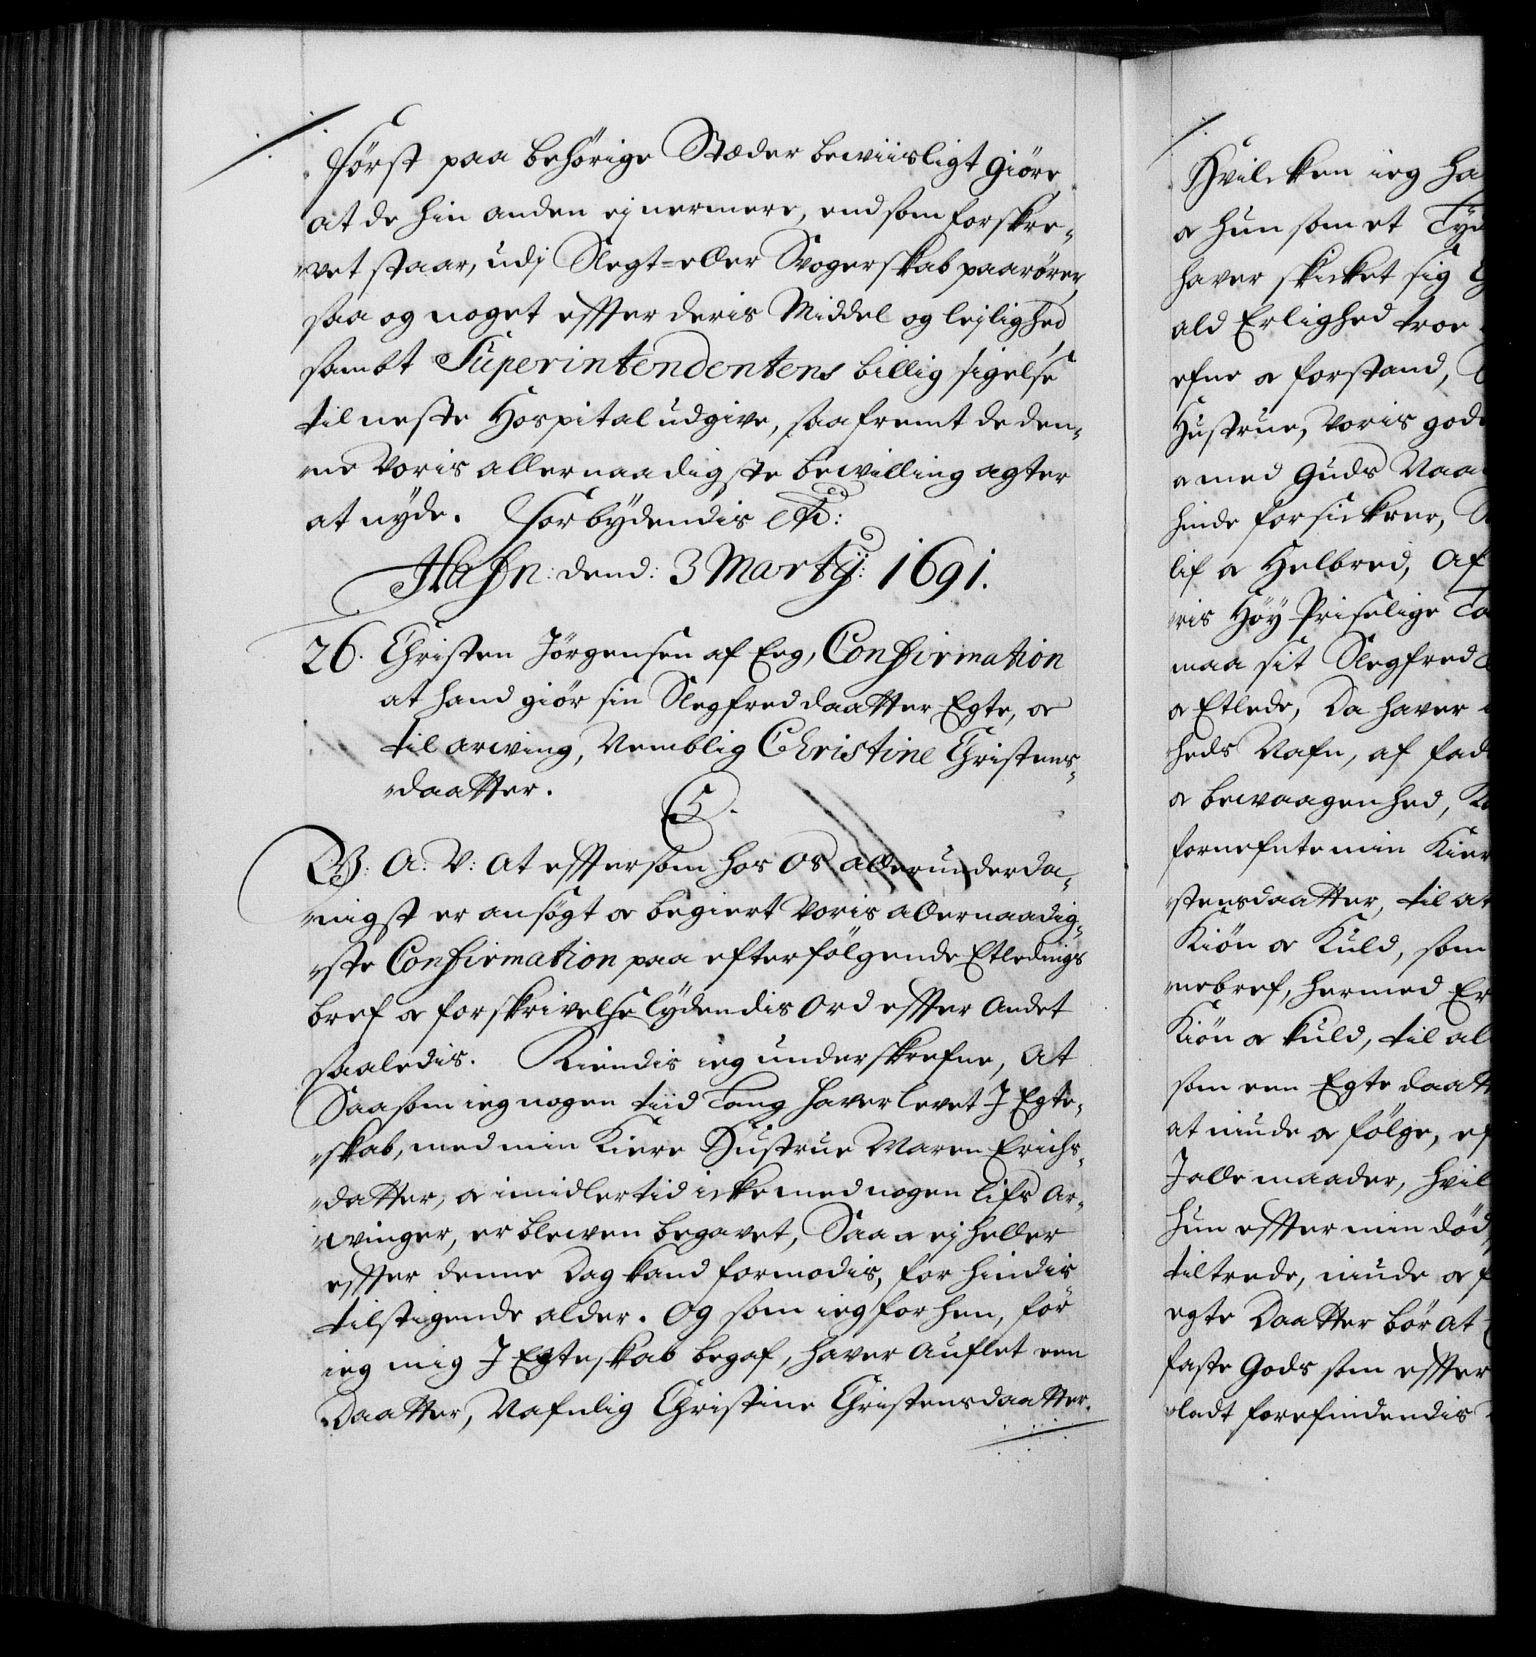 Först paa behörige Stæder bewiisligt giöre
at de hin anden ej nermere, end som forskre-
vet staar, udj Slegt- eller Svogerskab paarörer,
saa og noget effter deris Middel og lejlighed
sambt Superintendentens billig sigelse
til neste Hospital udgive, saafremt de den-
ne Voris allernaadigste bewilling agter
at nyde. Forbydendis etc:
Hafn: dend: 3 Martij: 1691.
26. Christen Jörgensen af Eeg, Confirmation
at hand giör sin Slegfreddaatter Egte, oc
til arwing, Nemblig Christine Christens-
daatter.
C5.
G: A: V: at effter som hos os allerunderda-
nigst er ansögt oc begiert Voris allernaadig-
ste Confirmation paa efterfölgende Etlednings
bref oc forskrivelse lydendis ord effter andet
saaledis. Kiendis ieg underskrefne, at
Saasom ieg nogen tiid lang haver levet J Egte-
skab, med min Kiere Hustrue Maren Erichs-
datter, oc imidlertid icke med nogen lifs Ar-
winger, er blewen begavet, Saa oc ej heller
effter denne Dag kand formodis, for hindis
tilstigende alder. Og som ieg forhen, för
ieg mig J Egteskab begaf, haver Auflet een
Daatter, Nafnlig Christine Christensdaatter.
Hvilcken ieg ha
oc hun som et Tyd
haver skicket sig
ald Erlighed troe
efne oc forstand,
Hustrue, Voris gode
oc med Guds Naa
hinde forsickrer,
lif oc Helbred, Af
ris Höy Priselige
maa sit Slegfred
oc Etlede, Da haver
heds Nafn, af fad
oc bewaagenhed,
fornefnte min Kier
stensdaatter, til at
Kiön oc Kuld, som
nebref, hermed Er
Kiön oc kuld, til al
som een Egte daatt
at niude oc fölge, ef
J alle maader, hvil
hun effter min död
tiltrede, niude oc f
egte Daatter bör at
faste Gods som effter
ladt forefindendis